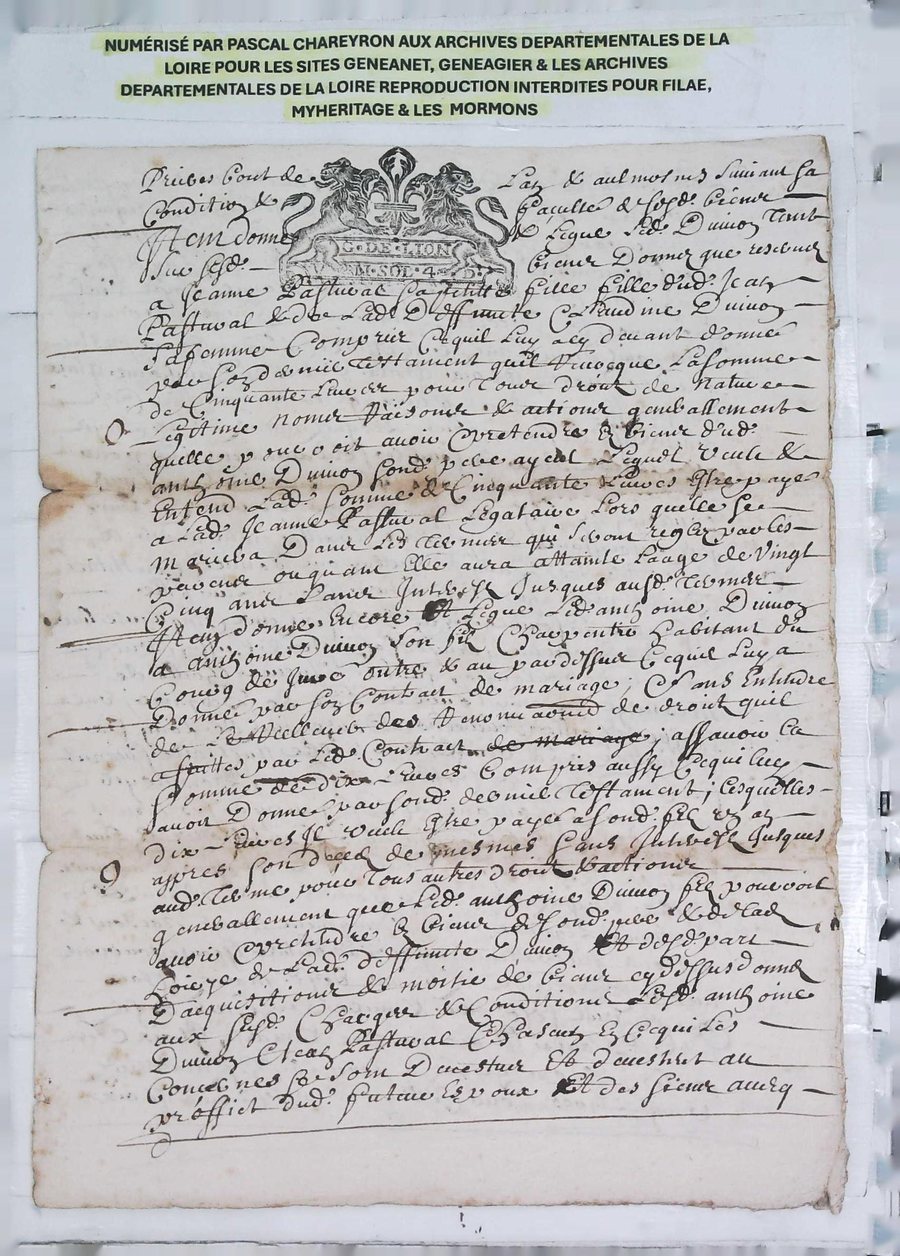 NUMÉRISÉ PAR PASCAL CHAREYRON AUX ARCHIVES DEPARTEMENTALES DE LA
LOIRE POUR LES SITES GENEANET, GENEAGIER & LES ARCHIVES
DEPARTEMENTALES DE LA LOIRE REPRODUCTION INTERDITES POUR FILAE,
MYHERITAGE & LES MORMONS
G·DE·LION
M·SOL·4·D·
prieres aulmosnes suivant sa
Condition & faculté &
Item donne & legue led. Duivon
biens Donner que
a Jeanne Pastural sa petite fille fille dud. Jean
Pastural & de lad. Deffuncte Claudine Duivon
sa femme Compris cequil luy a cy devant donné
par son dernier Testament quil revocque la somme
de Cinquante livres pour tous droit de nature
Legitime nomer raisons & actions generallement
quelle pourroit avoir & pretendre es biens dud.
anthoine Duivon sond. pere ayeul Lequel veult &
Entend lad. somme de Cinquante livres estre payé
a lad. Jeanne Pastural Legataire Lors quelle se
mariera Dans les termes qui seront reglez par les
parens ou quant Elle aura attainte laage de vingt
Cinq ans sans Interest Jusques ausd. termes
Item donne Encore & legue led. anthoine Duivon
a anthoine Duivon son fils Charpentier habitant du
bourg de outre & au par dessus cequil luy a
Donné par son Contract de mariage, & sans Entendre
de droit quil
a faittes par led. Contract de mariage; assavoir la
somme de dix livres Compris aussy cequil luy
avoit Donné par sond. dernier Testament; lesquelles
dix livres Il veult estre payé a sond. fils un an
appres son deced de mesmes sans Interest Jusques
aud. terme pour tous autres droit & actions
generallement que led. anthoine Duivon fils pourroit
avoir & pretendre es biens de sond. pere & de lad.
& lad. deffuncte Duivon Et desd. part
Dacquisitions & moitié de biens cy dessus donné
aux susd. Charges & Conditions lesd. anthoine
Duivon & Jean Pastural Chascun en cequi les
Concernes se sont Devestus Et devestent au
proffict dud. futur Espoux Et des siens avecq